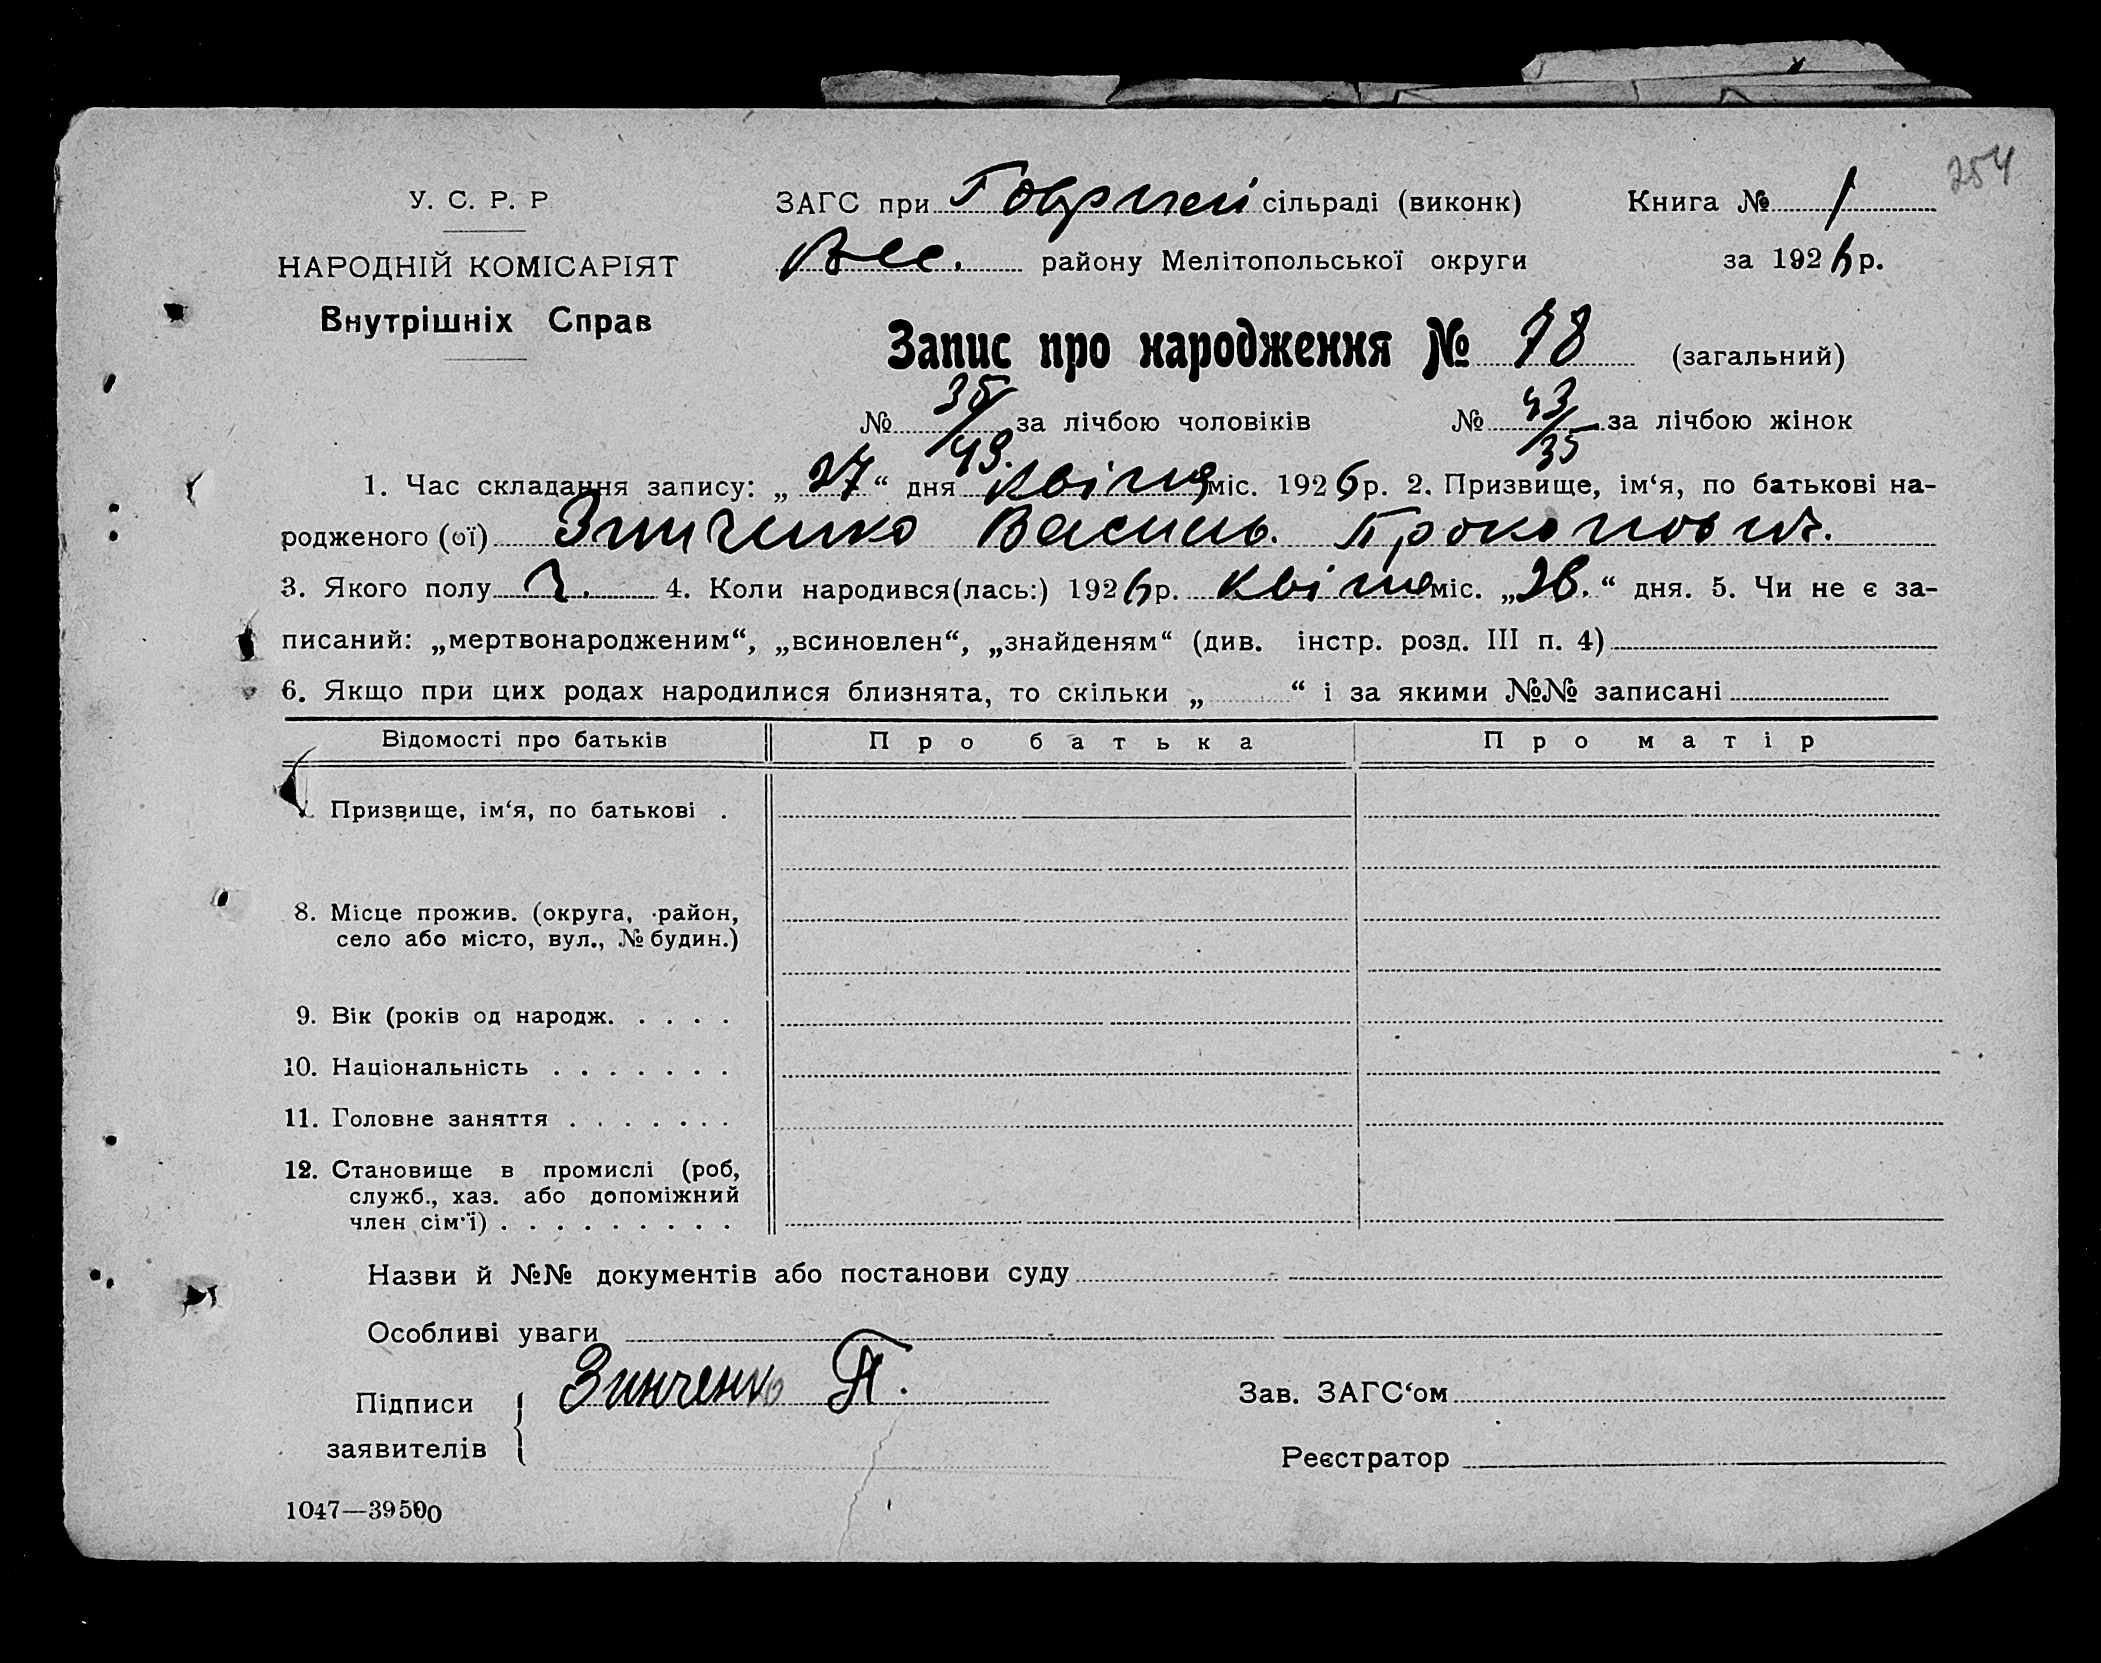 254
У. С. Р. Р
НАРОДНІЙ КОМІСАРІЯТ
Внутрішніх Справ
ЗАГС при сільраді (виконк)
Вес. району Мелітопольської округи
Книга № 1
за 1926 р.
Запис про народження № 78 (загальний)
№ за лічбою чоловіків № 43/35 за лічбою жінок
1. Час складання запису: „27“ дня Квітня міс. 1926 р. 2. Призвище, ім‘я, по батькові на-
родженого (ої) Зинченко Василь Прокопович.
3. Якого полу ч. 4. Коли народився(лась:) 1926 р. Квітня міс. „26.“ дня. 5. Чи не є за-
писаний: „мертвонародженим“, „всиновлен“, „знайденям“ (див. інстр. розд. III п. 4)
6. Якщо при цих родах народилися близнята, то скільки „ “ і за якими №№ записані
Відомості про батьків Про батька Про матір
Призвище, ім‘я, по батькові .
8. Місце прожив. (округа, район,
село або місто, вул., № будин.)
9. Вік (років од народж. . . . .
10. Національність . . . . . . .
11. Головне заняття . . . . . . .
12. Становище в промислі (роб,
служб., хаз. або допоміжний
член сім‘ї) . . . . . . . . .
Назви й №№ документів або постанови суду
Особливі уваги
Підписи
заявителів
Зинченко П.
Зав. ЗАГС‘ом
Реєстратор
1047—39500